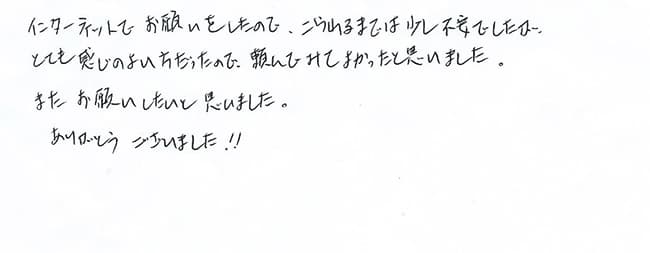 インターネットで お願いをしたので、こられるまでは少し不安でしたが
とても感じのよい方だったので、頼んでみてよかったと思いました。
また お願いしたいと思いました。
ありがとう ございました!!